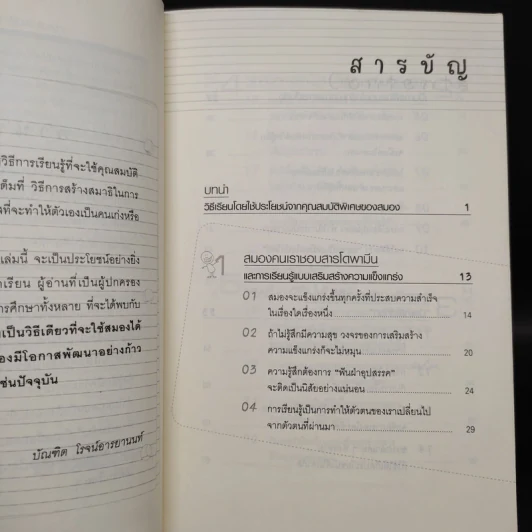 วิธีการเรียนรู้ที่จะใช้คุณสมบัติ
ต็มที่ วิธีการสร้างสมาธิในการ
ที่จะทำให้ตัวเองเป็นคนเก่งหรือ
เล่มนี้ จะเป็นประโยชน์อย่างยิ่ง
เรียน ผู้อ่านที่เป็นผู้ปกครอง
การศึกษาทั้งหลาย ที่จะได้พบกับ
เป็นวิธีเดียวที่จะใช้สมองได้
องมีโอกาสพัฒนาอย่างก้าว
ช่นปัจจุบัน
บัณฑิต โรจน์อารยานนท์
สารบัญ
บทนำ
วิธีเรียนโดยใช้ประโยชน์จากคุณสมบัติพิเศษของสมอง 1
1 สมองคนเราชอบสารโดพามีน
และการเรียนรู้แบบเสริมสร้างความแข็งแกร่ง 13
01 สมองจะแข็งแกร่งขึ้นทุกครั้งที่ประสบความสำเร็จ
ในเรื่องใดเรื่องหนึ่ง 14
02 ถ้าไม่รู้สึกมีความสุข วงจรของการเสริมสร้าง
ความแข็งแกร่งก็จะไม่หมุน 20
03 ความรู้สึกต้องการ "ฟันฝ่าอุปสรรค"
จะติดเป็นนิสัยอย่างแน่นอน 24
04 การเรียนรู้เป็นการทำให้ตัวตนของเราเปลี่ยนไป
จากตัวตนที่ผ่านมา 29